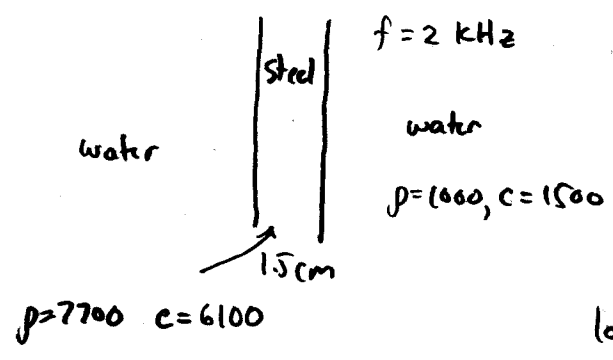 f = 2 KHz
Steel
water
water
ρ=1000, c=1500
1.5cm
ρ=7700 c=6100